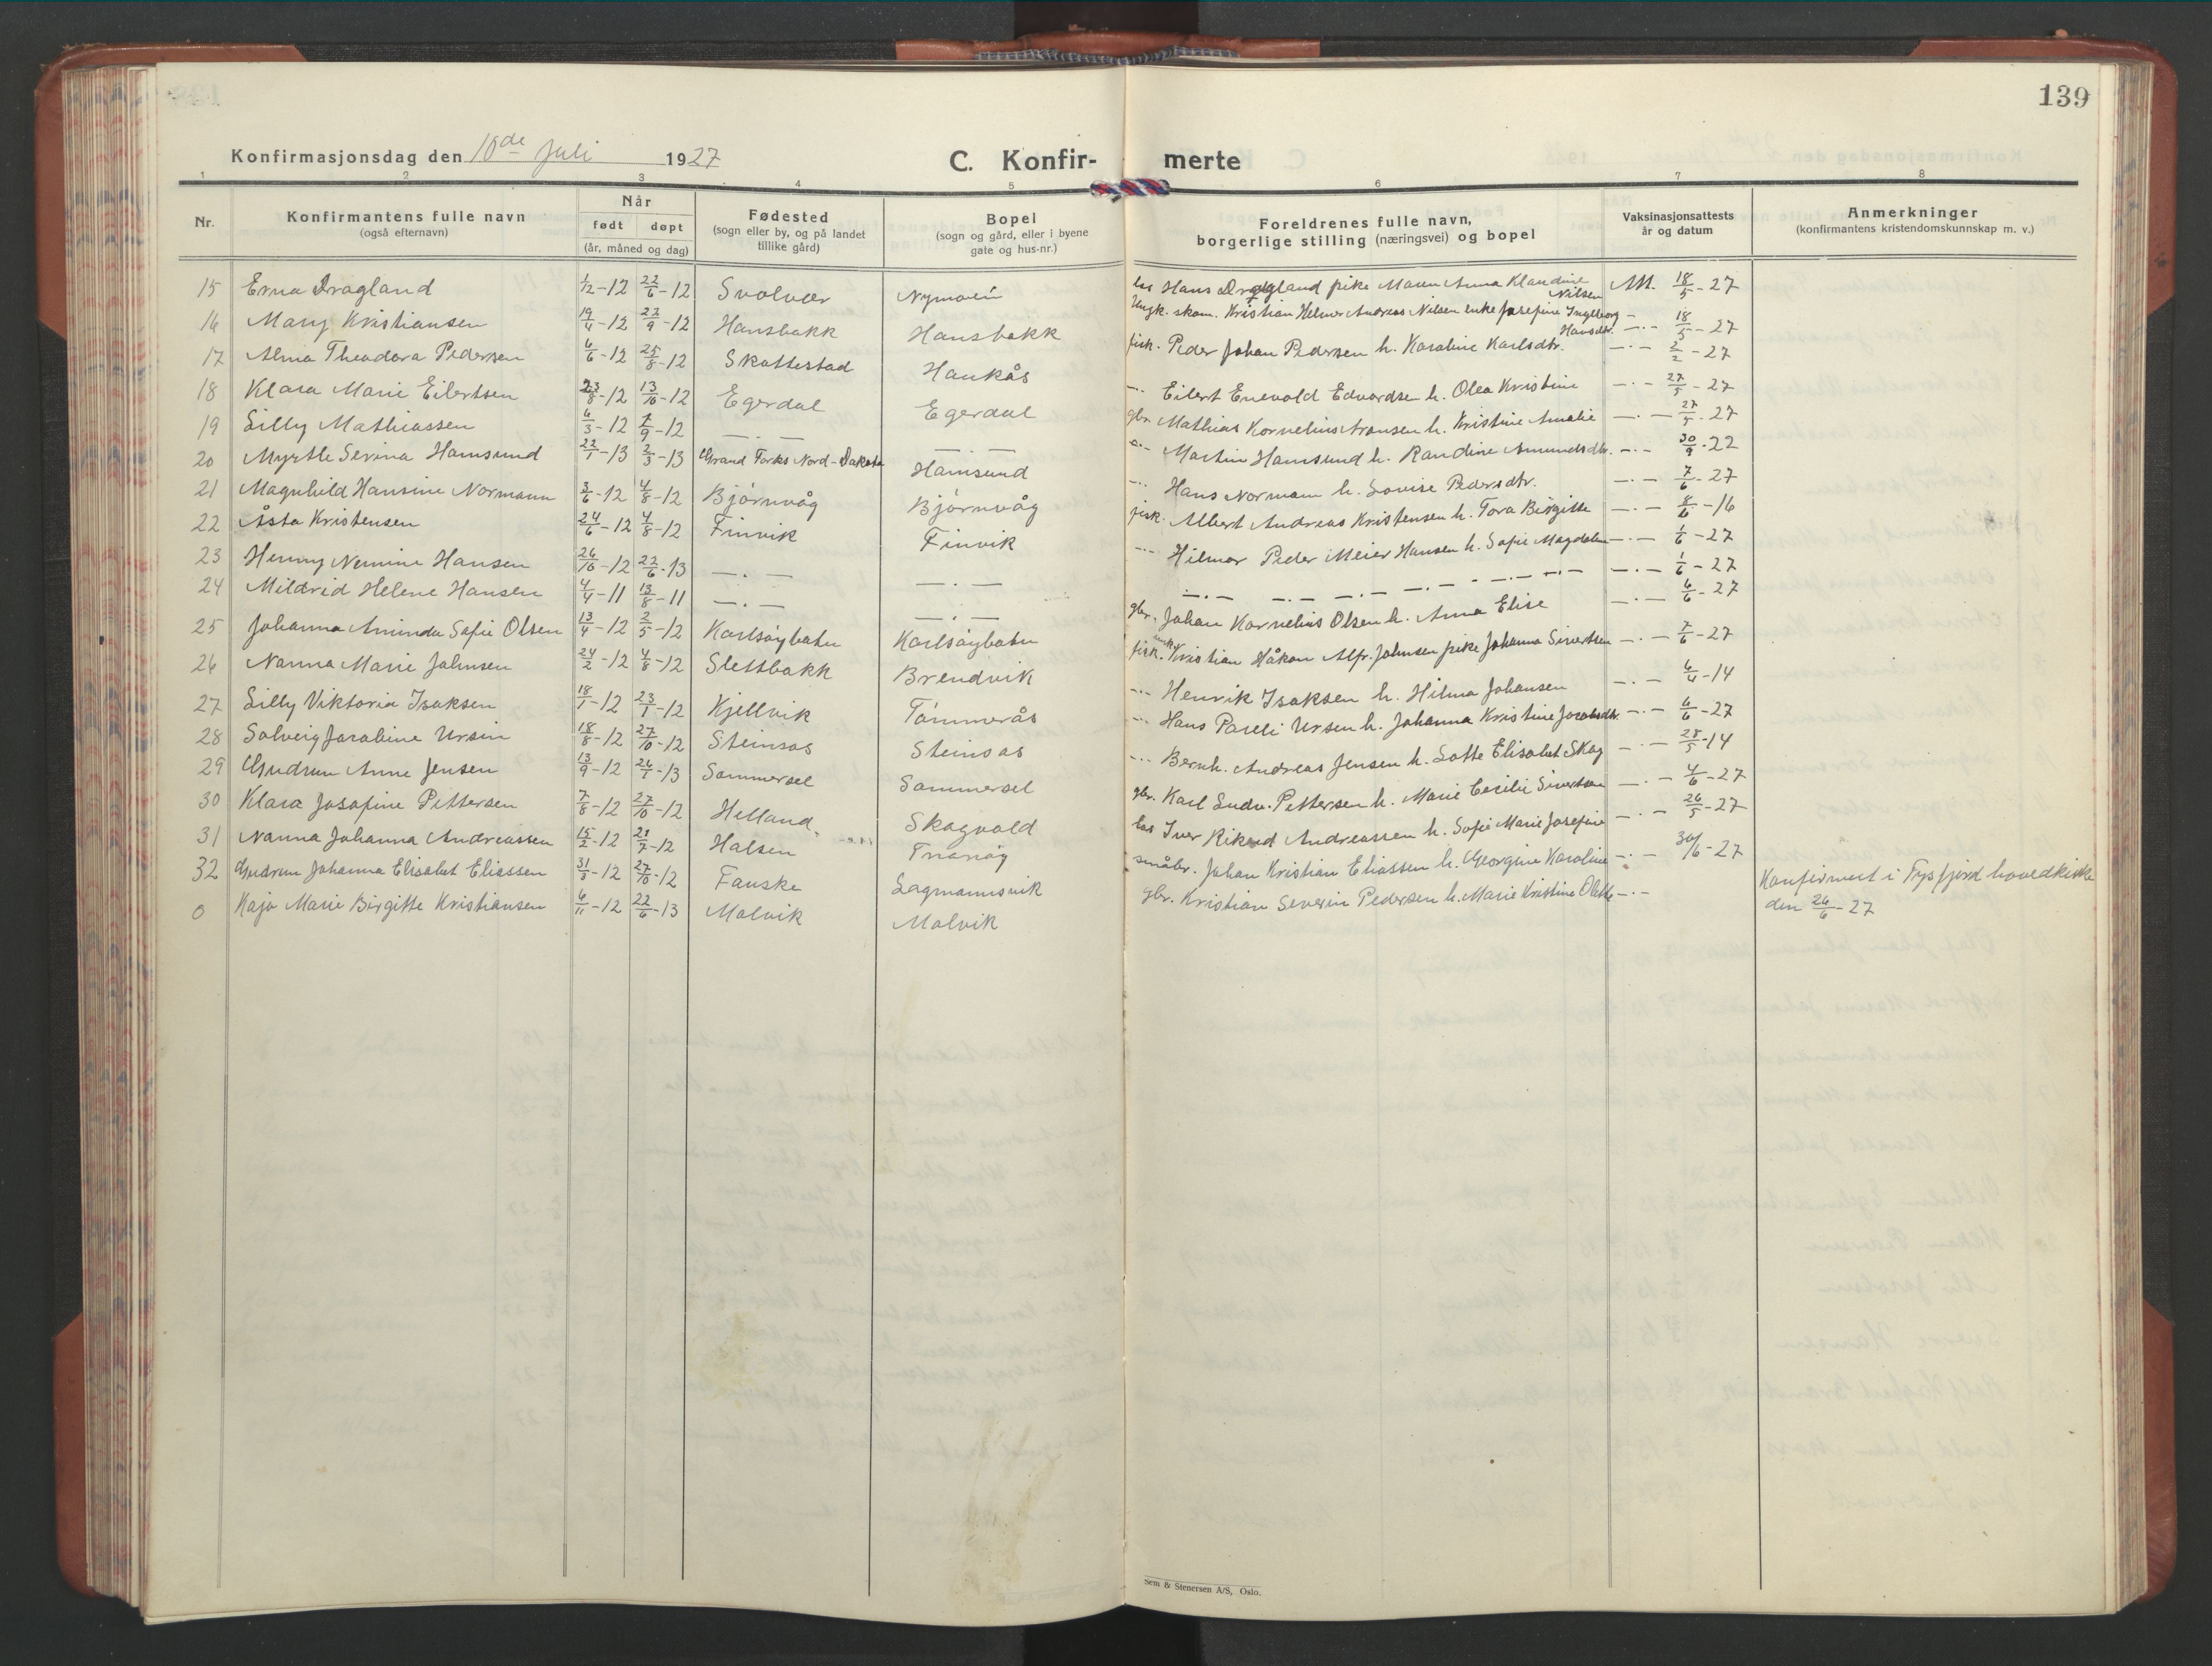 139
Konfirmasjonsdag den 10de juli 1927
C. Konfirmerte
1 2 3 4 5 6 7 8
Nr. Konfirmantens fulle navn (også efternavn) Når født døpt (år, måned og dag) Fødested (sogn eller by, og på landet tillike gård) Bopel (sogn og gård, eller i byene gate og hus-nr.) Foreldrenes fulle navn, borgerlige stilling (næringsvei) og bopel Vaksinasjonsattests år og datum Anmerkninger (konfirmantens kristendomskunnskap m. v.)
15 Erna Dragland 1/2-12 22/6-12 Svolvær Nymoen las Hans Dragland pike Maren Anna Klaudine Nilsen M. 18/5-27
16 Mary Kristiansen 19/4-12 22/9-12 Hansbakk Hansbakk Ungk. skom. Kristian Helmer Andreas Nilsen enke Josefine Ingeborg Hansdtr. -.- 18/5-27
17 Alma Theodora Pedersen 6/6-12 25/8-12 Skattestad Haukås fisk. Peder Johan Pedersen h. Karoline Karlsdtr. -.- 2/2-27
18 Klara Marie Eilertsen 23/8-12 13/10-12 Egerdal Egerdal -.- Eilert Enevold Edvardsen h. Olea Kristine -.- 27/5-27
19 Lilly Mathiassen 6/3-12 1/9-12 -.- -.- gbr. Mathias Kornelius Aronsen h. Kristine Amalie -.- 27/5-27
20 Myrtle Serina Hamsund 22/1-13 2/3-13 Grand Forks Nord-Dakota Hamsund -.- Martin Hamsund h. Randine Amundsdtr. -.- 30/9-22
21 Magnhild Hansine Normann 3/6-12 4/8-12 Bjørnvåg Bjørnvåg -.- Hans Normann h. Lovise Pedersdtr. -.- 7/6-27
22 Åsta Kristensen 24/6-12 4/8-12 Finvik Finvik fisk. Albert Andreas Kristensen h. Tora Birgitte -.- 8/6-16
23 Henny Nermine Hansen 26/10-12 22/6-13 -.- -.- -.- Hilmar Peder Meier Hansen h. Sofie Magdalen -.- 1/6-27
24 Mildrid Helene Hansen 4/4-11 13/8-11 -.- -.- -.- -.- -.- -.- -.- -.- -.- 1/6-27
25 Johanna Aminda Sofie Olsen 13/4-12 2/5-12 Karlsøybatn Karlsøybatn gbr. Johan Kornelius Olsen h. Anna Elise -.- 6/6-27
26 Nanna Marie Johnsen 24/2-12 4/8-12 Slettbakk Brendvik fisk. ungk. Kristian Håkon Alfr. Johnsen pike Johanna Sivertsen -.- 7/6-27
27 Lilly Viktoria Isaksen 18/1-12 23/1-12 Kjellvik Tømmerås -.- Henrik Isaksen h. Hilma Johansen -.- 6/4-14
28 Solveig Jarabine Ursin 18/8-12 27/10-12 Steinsås Steinsås -.- Hans Pareli Ursen h. Johanna Kristine Jacobsdtr. -.- 6/6-27
29 Gudrun Anne Jensen 13/9-12 26/1-13 Sommersel Sommersel -.- Bernh. Andreas Jensen h. Lotte Elisabet Skog -.- 28/5-14
30 Klara Josafine Pettersen 7/8-12 27/10-12 Helland Skogvold gbr. Karl Ludv. Pettersen h. Marie Cecilie Sivertsen -.- 4/6-27
31 Nanna Johanna Andreassen 15/2-12 21/7-12 Halsen las Iver Rikard Andreassen h. Sofie Marie Josefine -.- 26/5-27
32 Gudrun Johanna Elisabet Eliassen 31/8-12 27/10-12 Fauske Lagmannsvik småbr. Johan Kristian Eliassen h. Georgine Karoline -.- 30/6-27
0 Kaja Marie Birgitte Kristiansen 6/11-12 22/6-13 Malvik Malvik gbr. Kristian Severin Pedersen h. Marie Kristine Olette -.- Konfirmert i Tysfjord hovedkirke
den 26/6-27
Sem & Stenersen A/S, Oslo.